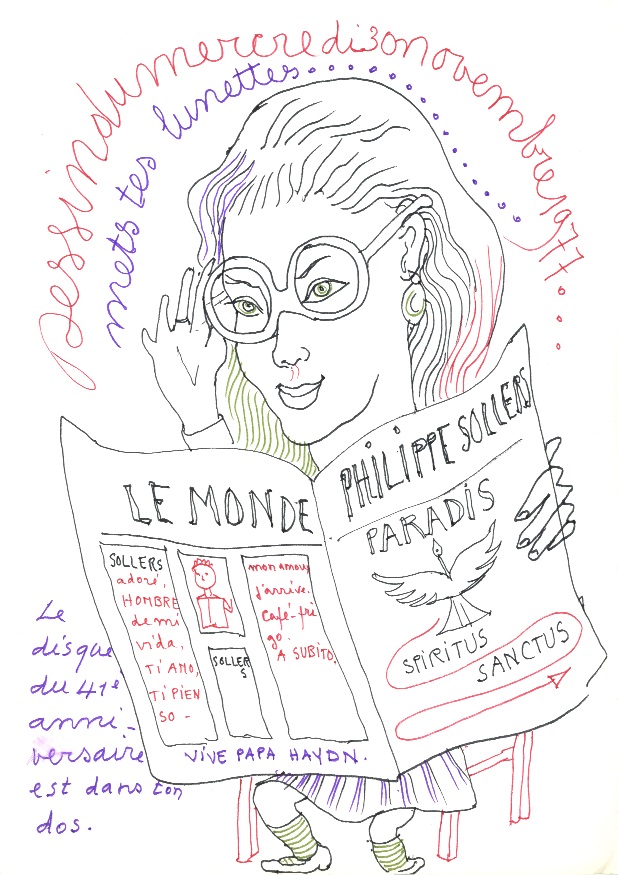 Dessin du mercredi 30 novembre 1977...
mets tes lunettes...............
LE MONDE
PHILIPPE SOLLERS
PARADIS
SOLLERS
adoré,
HOMBRE
de mi
vida,
TI AMO,
TI PIEN
SO -
SOLLER
S
mon amour
j'arrive.
Café-fri
go.
A SUBITO.
SPIRITUS
SANCTUS
VIVE PAPA HAYDN.
Le
disque
du 41e
anni-
versaire
est dans ton
dos.